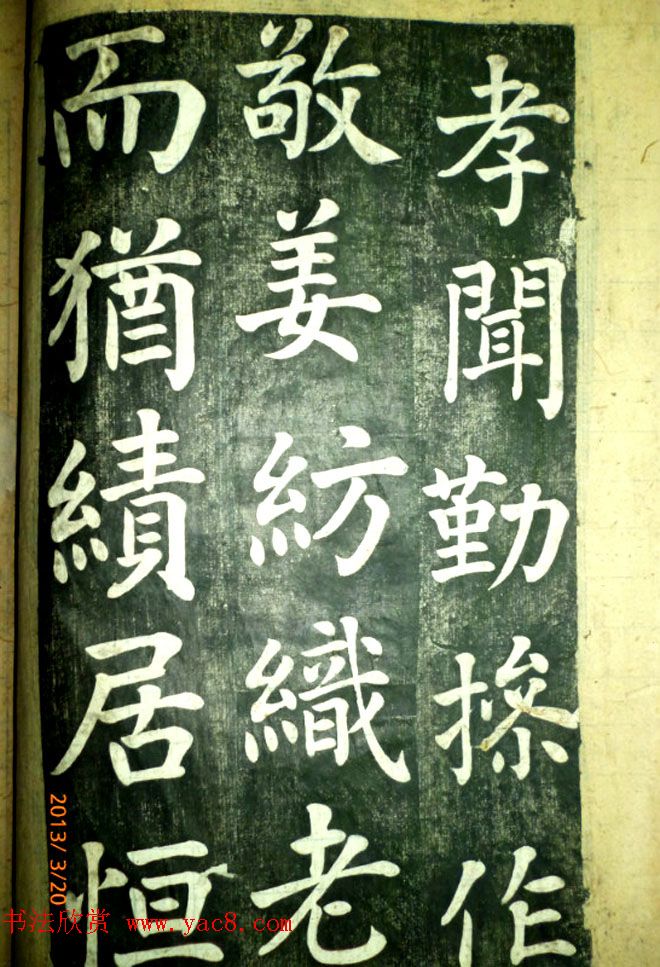 孝聞勤操作
敬姜紡織老
而猶績居恒
2013/ 3/20
书法欣赏 www.yac8.com